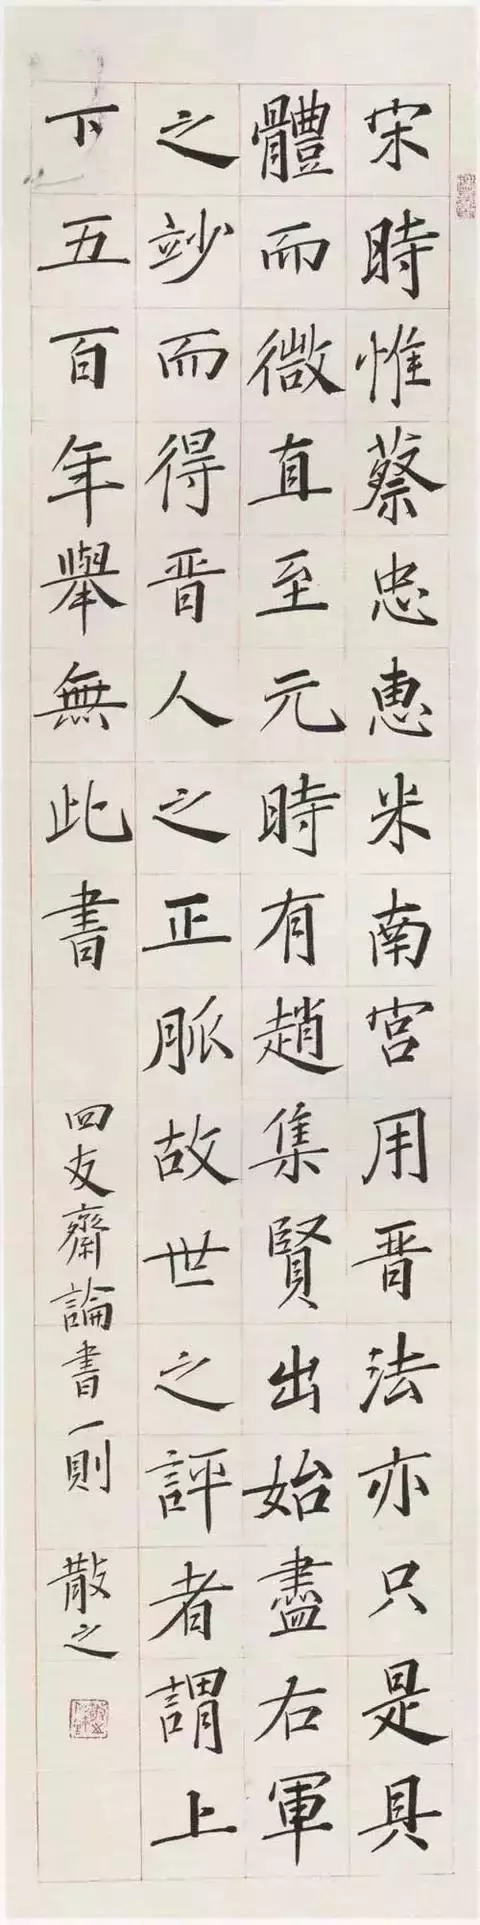 宋時惟蔡忠惠米南宫用晋法亦只是具
體而微直至元時有趙集賢出始盡右軍
之竗而得晋人之正脈故世之評者謂上
下五百年舉無此書
四友齋論書一則 散之